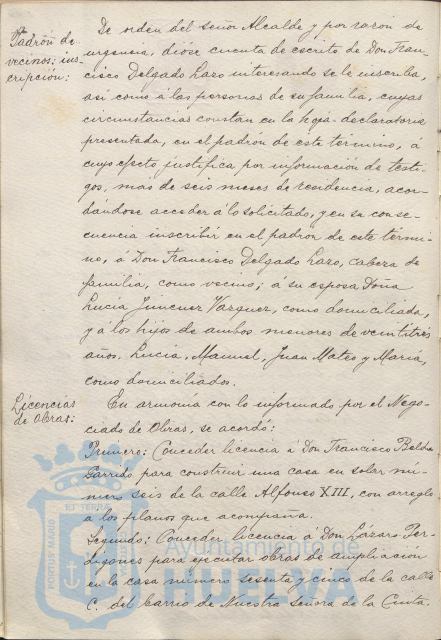 Padrón de
vecinos: ins-
cripción:
De orden del señor Alcalde y por razón de
urgencia, dióse cuenta de escrito de Don Fran-
cisco Delgado Lazo interesando se le inscriba,
así como á las personas de su familia, cuyas
circunstancias constan en la hoja-declaratoria
presentada, en el padrón de este término, á
cuyo efecto justifica, por información de testi-
gos, más de seis meses de residencia, acor-
dándose acceder á lo solicitado, y en su conse-
cuencia inscribir en el padrón de este térmi-
no, á Don Francisco Delgado Lazo, cabeza de
familia, como vecino; á su esposa Doña
Lucía Jimenez Vazquez, como domiciliada,
y á los hijos de ambos menores de veintitrés
años, Lucía, Manuel, Juan Mateo y María,
como domiciliados.
Licencias
de Obras:
En armonía con lo informado por el Nego-
ciado de Obras, se acordó:
Primero: Conceder licencia á Don Francisco
Garrido para construir una casa en solar nú-
mero seis de la calle Alfonso XIII, con arreglo
a los planos que acompaña.
Segundo: Conceder licencia á Don Lázaro Per-
digones para ejecutar obras de ampliación
en la casa número sesenta y cinco de la calle
C. del barrio de Nuestra Señora de la Cinta.
PORTUS MARIS
ET TERRAE
Ayuntamiento
HUELVA